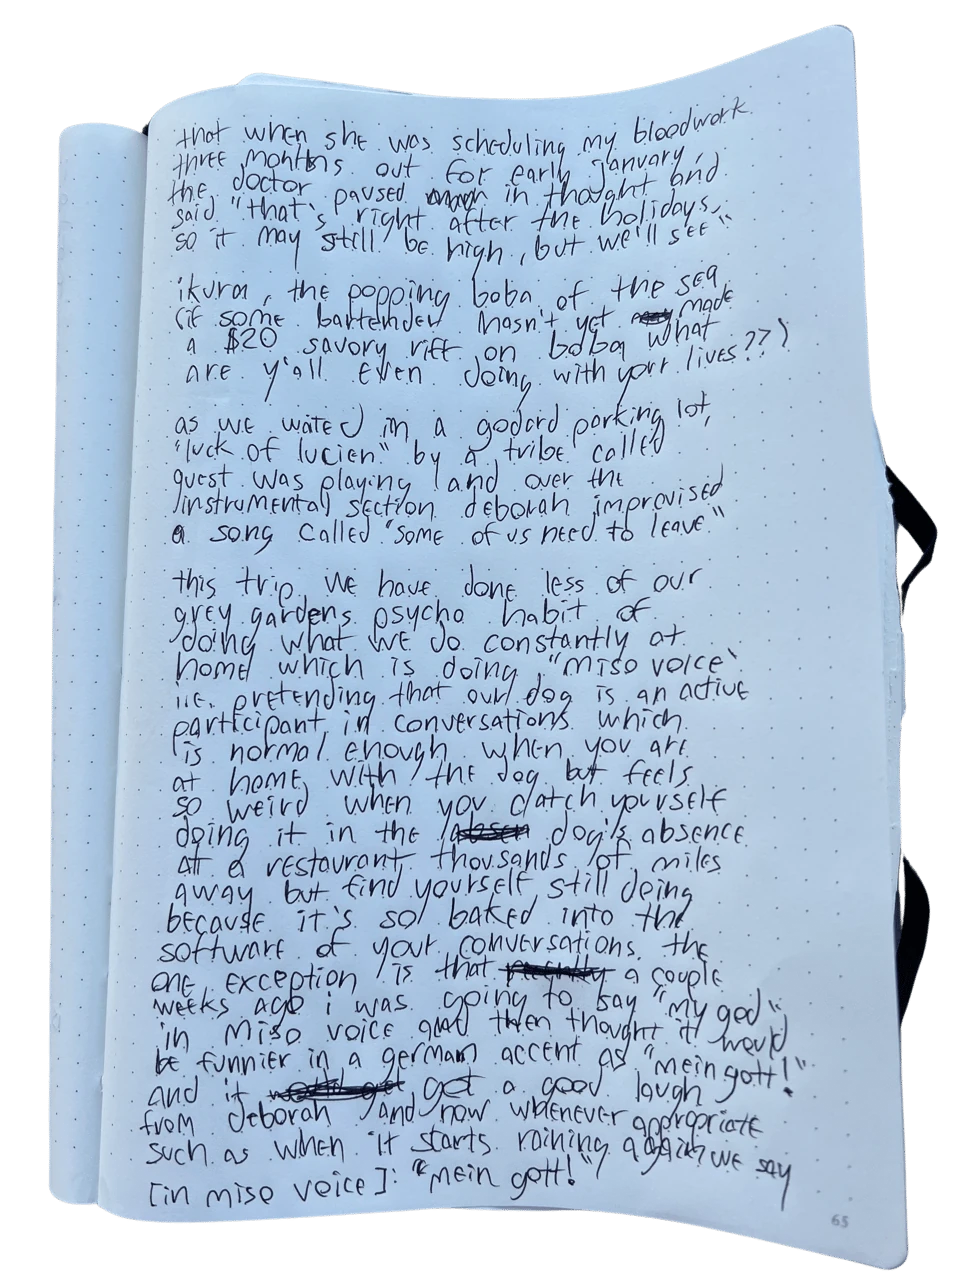 that when she was scheduling my bloodwork
three months out for early january,
the doctor paused in thought and
said "that's right after the holidays,
so it may still be high, but we'll see"
ikura, the popping boba of the sea
(if some bartender hasn't yet made
a $20 savory riff on boba what
are y'all even doing with your lives??)
as we waited in a godard parking lot,
"luck of lucien" by a tribe called
quest was playing and over the
instrumental section deborah improvised
a song called "some of us need to leave"
this trip we have done less of our
grey gardens psycho habit of
doing what we do constantly at
home which is doing "miso voice"
i.e. pretending that our dog is an active
participant in conversations which
is normal enough when you are
at home with the dog but feels
so weird when you catch yourself
doing it in the dog's absence
at a restaurant thousands of miles
away but find yourself still doing
because it's so baked into the
software of your conversations. the
one exception is that a couple
weeks ago i was going to say "my god"
in miso voice and then thought it would
be funnier in a german accent as "mein gott!"
and it got a good laugh
from deborah and now whenever appropriate
such as when it starts raining again we say
[in miso voice]: "mein gott!"
65